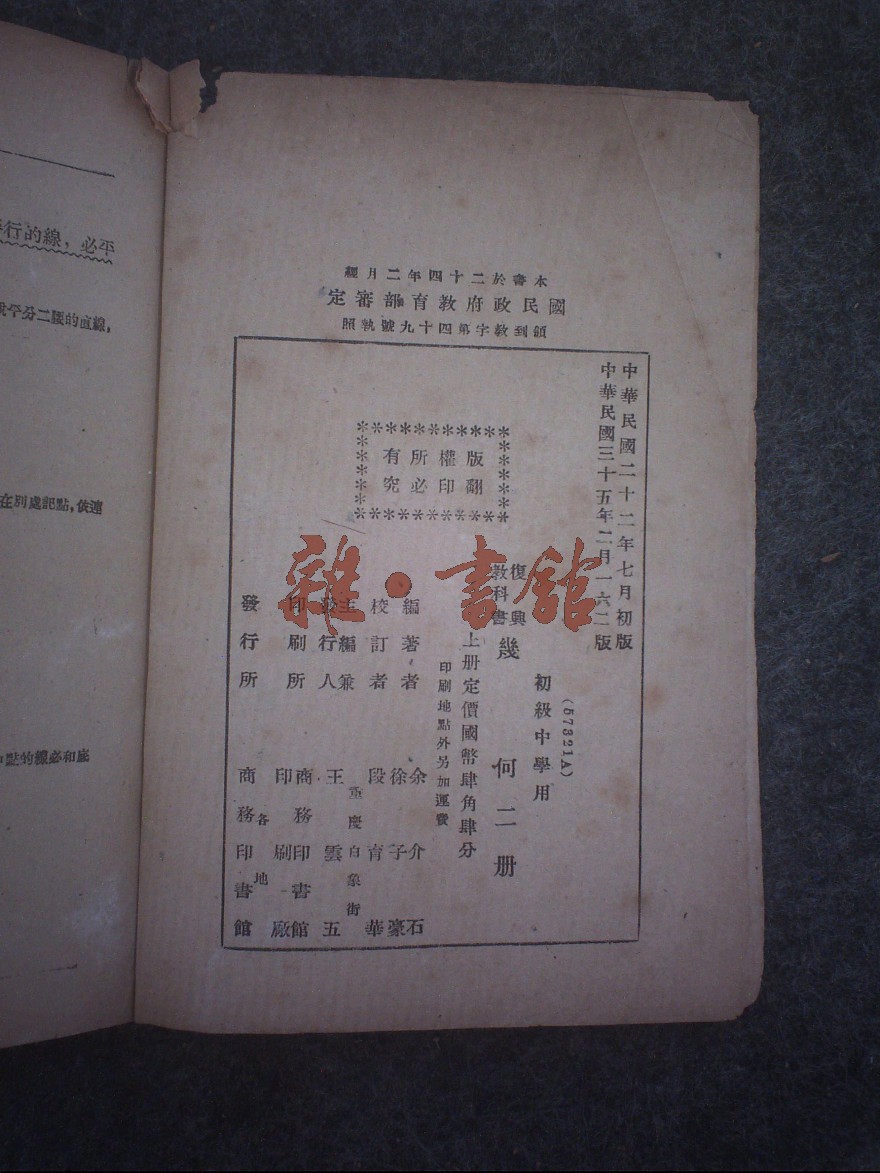 行的線，必平
平分二腰的直線，
在別處記點，依連
點的線必和底
本書於二十四年二月經
國民政府教育部審定
領到教字第四十九號執照
中華民國二十二年七月初版
中華民國三十五年二月一六二版
版權所有
翻印必究
(57321A)
初級中學用
復興
教科書
幾何二册
上册定價國幣肆角肆分
印刷地點外另加運費
編著者 余介石
徐子豪
校訂者 段育華
主編兼
發行人 王雲五
重慶白象街
印刷所 商務印書館
印刷廠
發行所 商務印書館
各地
雜·書館